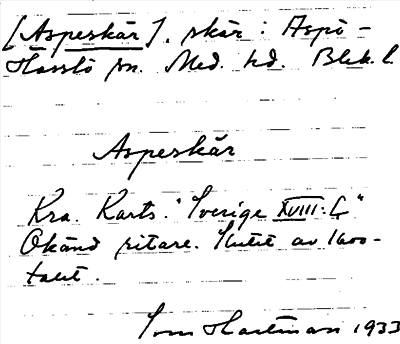 [Aspeskär], skär: Aspö-
Hasslö sn. Med. hd. Blek. l.
Aspeskär
Kra. Karts. "Sverige XVIII: 4"
Okänd ritare. Slutet av 1600-
talet.
Hartman 1933